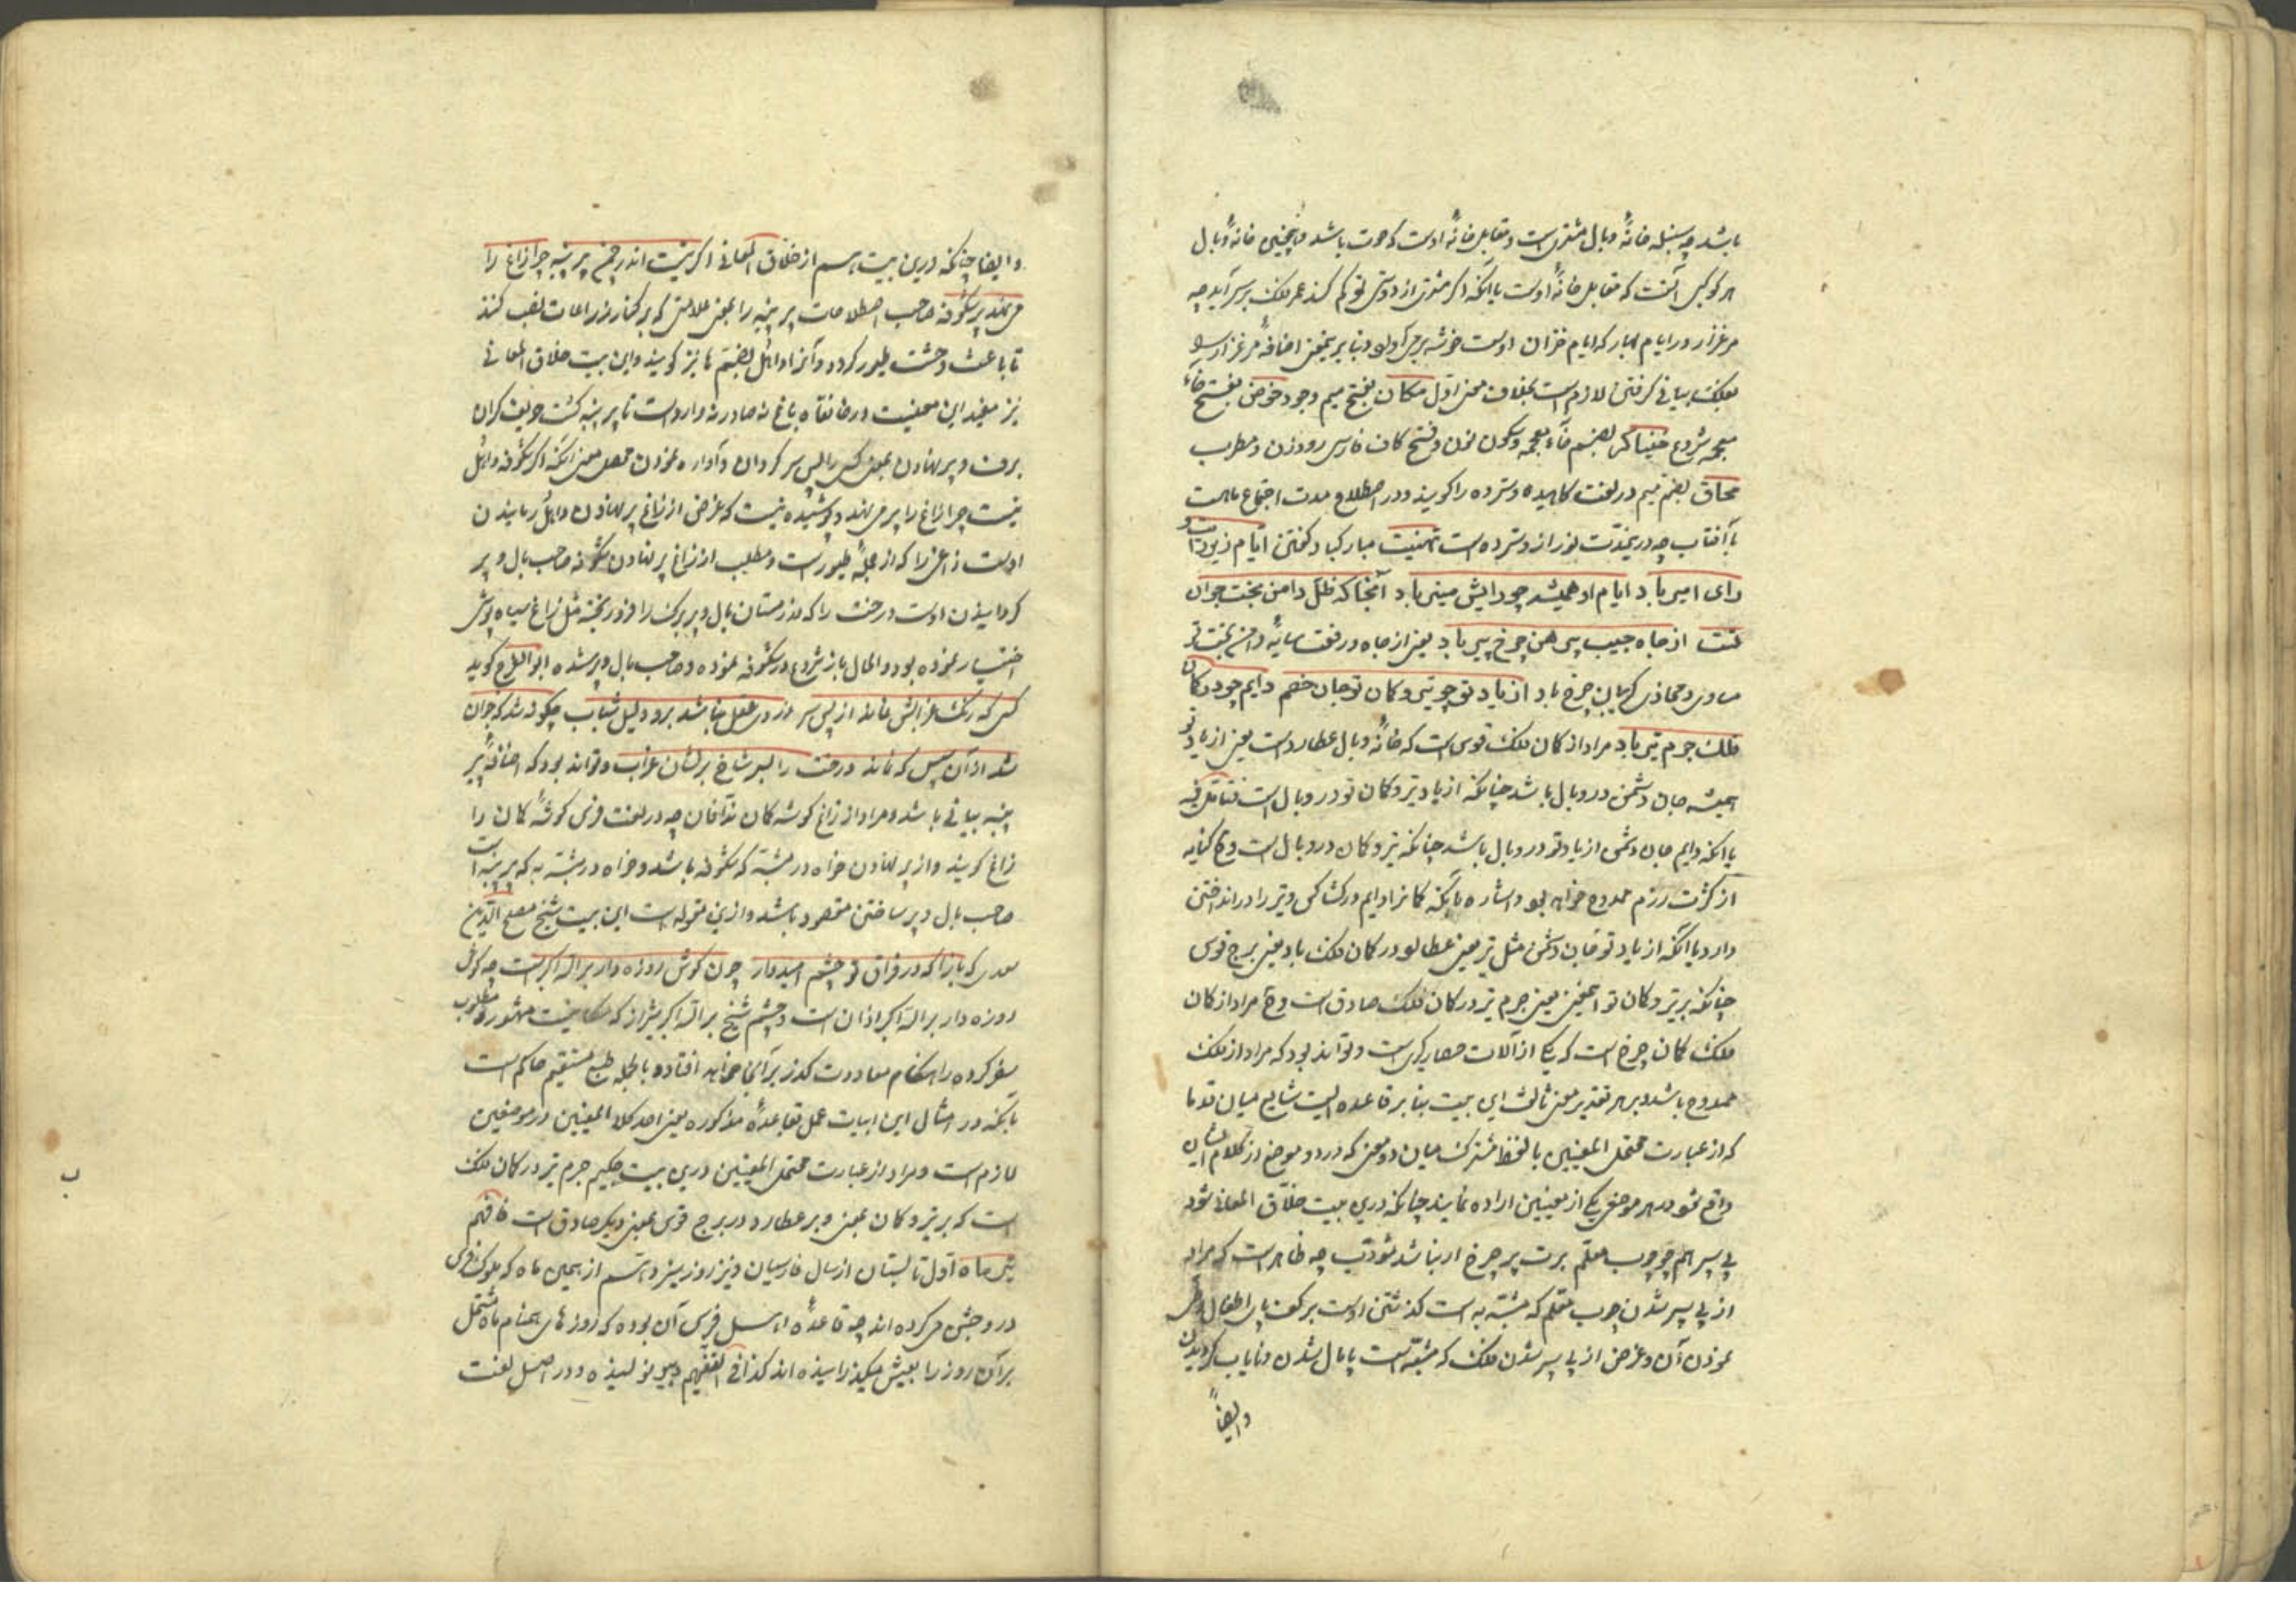 باشد چه سنبله خانهٔ وبال مشتریست و مقابل خانهٔ اوست که حوت باشد و همچنین خانهٔ وبال
هر کوکبی آنست که مقابل خانهٔ اوست یا آنکه اگر مشتری از دوستی تو کم کند عمر ملک بر سر آید چه
مرغزار در ایام بهار که ایام خزان اوست خوشه بر می آورد و بنابر یمعنی اضافهٔ مرغزار سوی
بفلک بیانی گرفتن لازم است بخلاف معنی اول مکان بفتح میم وجود خوض بفتح خاء
معجمه شروع خنیاگر بضم خاء معجمه و سکون نون و فتح کاف فارسی رود زن و مطرب
محاق بضم میم در لغت کاهیده و سترده را گویند و در اصطلاح مدت اجتماع ماهست
با آفتاب چه درینمدت نور از و سترده است تهنیت مبارکباد گفتن ایام زیر دست
رای امیر باد ایام او همیشه چو رایش منیر باد آنجا که ظل دامن بخت جوان
تست از جاه جیب پیرهن چرخ پیر باد یعنی از جاه و رفعت سایهٔ دامن بخت تو
مساوی و محاذی گریبان چرخ باد از یاد تو چو تیر و کمان تو جان خصم دایم چو در کمان
فلک جرم تیر باد مراد از کمان فلک قوس است که خانهٔ وبال عطارد است یعنی از یاد تو
همیشه جان دشمن در وبال باشد چنانکه از یاد تیر و کمان تو در وبال است فتأمل فیه
یا آنکه دایم جان دشمن از یاد تو در وبال باشد چنانکه تیر و کمان در وبال است و ح کنایه
از کثرت رزم ممدوح خواهد بود و اشاره بآنکه کمانرا دایم در کشاکش و تیر را در انداختن
دارد یا آنکه از یاد تو جان دشمن مثل تیر یعنی عطارد در کمان فلک باد یعنی برج قوس
چنانکه بر تیر و کمان تو اینمعنی یعنی جرم تیر در کمان فلک صادق است و ح مراد از کمان
فلک کمان چرخ است که یکی از آلات حصارگیریست و تواند بود که مراد از فلک
ممدوح باشد و بر هر تقدیر معنی ثالث این بیت بنابر قاعده ایست شایع میان قدما
که از عبارت محتمل المعنیین یا لفظ مشترک میان دو معنی که در دو موضع از کلام ایشان
واقع شود در هر موضعی یکی از معنیین اراده نمایند چنانکه درین بیت خلاق المعانی شود
پی سپر همچو چوب معلم برت پر چرخ ار نباشد مؤدب چه ظاهر است که مراد
از پی سپر شدن چوب معلم که مشبه به است گذشتن اوست بر کف پای اطفال و
نمودن آن و غرض از پی سپر شدن فلک که مشبه است پامال شدن و نایاب گردیدن
وایضاً
وایضا چنانکه درین بیت هم از خلاق المعانی اگر نیست اندر چمن پر پنبه چرا زاغ را
می نهد پر شکوفه صاحب اصطلاحات پر پنبه را بمعنی علامتی که بر کنار زراعات نصب کنند
تا باعث وحشت طیور گردد و آنرا واهل بضم ها نیز گویند و این بیت خلاق المعانی
نیز مفید این معنیست در خانقاه باغ نه صادر نه واردست تا پر پنبه گشت حریف گران
برف و پر نهادن بمعنی کسی را سر گردان و آواره نمودن محصل معنی آنکه اگر شکوفه واهل
نیست چرا زاغ را پر می نهد و پوشیده نیست که غرض از زاغ پر نهادن واهل رمانیدن
اوست زاغی را که از جملهٔ طیور است و مطلب از زاغ پر نهادن شکوفه صاحب بال و پر
گردانیدن اوست درخت را که در زمستان بال و پر برگ را فرو ریخته مثل زاغ سیاه پوشی
اختیار نموده بود و الحال باز شروع در شکوفه نموده و صاحب بال و پر شده ابو الفرج گوید
کسی که رنگ غرابش نماند از پس سر از در عقل نباشد برو دلیل شباب چگونه شد که جوان
شد از آن پس که نماند درخت را بسر شاخ بر نشان غراب و تواند بود که اضافهٔ پر
پنبه بیانی باشد و مراد از زاغ گوشه کمان ندافان چه در لغت فرس گوشهٔ کمان را
زاغ گویند و از پر نهادن خواه در مشبه که شکوفه باشد و خواه در مشبه به که پر پنبه است
صاحب بال و پر ساختن مقصود باشد و ازین مقوله است این بیت شیخ مصلح الدین
سعدی که بازآ که در فراق تو چشم امیدوار چون گوش روزه دار بر الله اکبر است چه گوش
روزه دار بر الله اکبر اذان است و چشم شیخ بر الله اکبر شیراز که مکانیست مشهور و محبوب
سفر کرده را هنگام معاودت گذر بر آنجا خواهد افتاد و بالجمله طبع مستقیم حاکم است
بآنکه در امثال این ابیات عمل بقاعدهٔ مذکوره یعنی اخذ کلا المعنیین در موضعین
لازم است و مراد از عبارت محتمل المعنیین درین بیت حکیم جرم تیر در کمان فلک
است که بر تیر و کمان بمعنی و بر عطارد در برج قوس بمعنی دیگر صادق است فافهم
تیر ماه اول تابستان از سال فارسیان و نیز روز سیزدهم از همین ماه که ملوک فرس
درو جشن می کرده اند چه قاعدهٔ اهل فرس آن بوده که روزهای همنام ماه مشتمل
بر آن روز را بعیش میگذرانیده اند کذا فی التفهیم دبیر نویسنده و در اصل لغت
ب